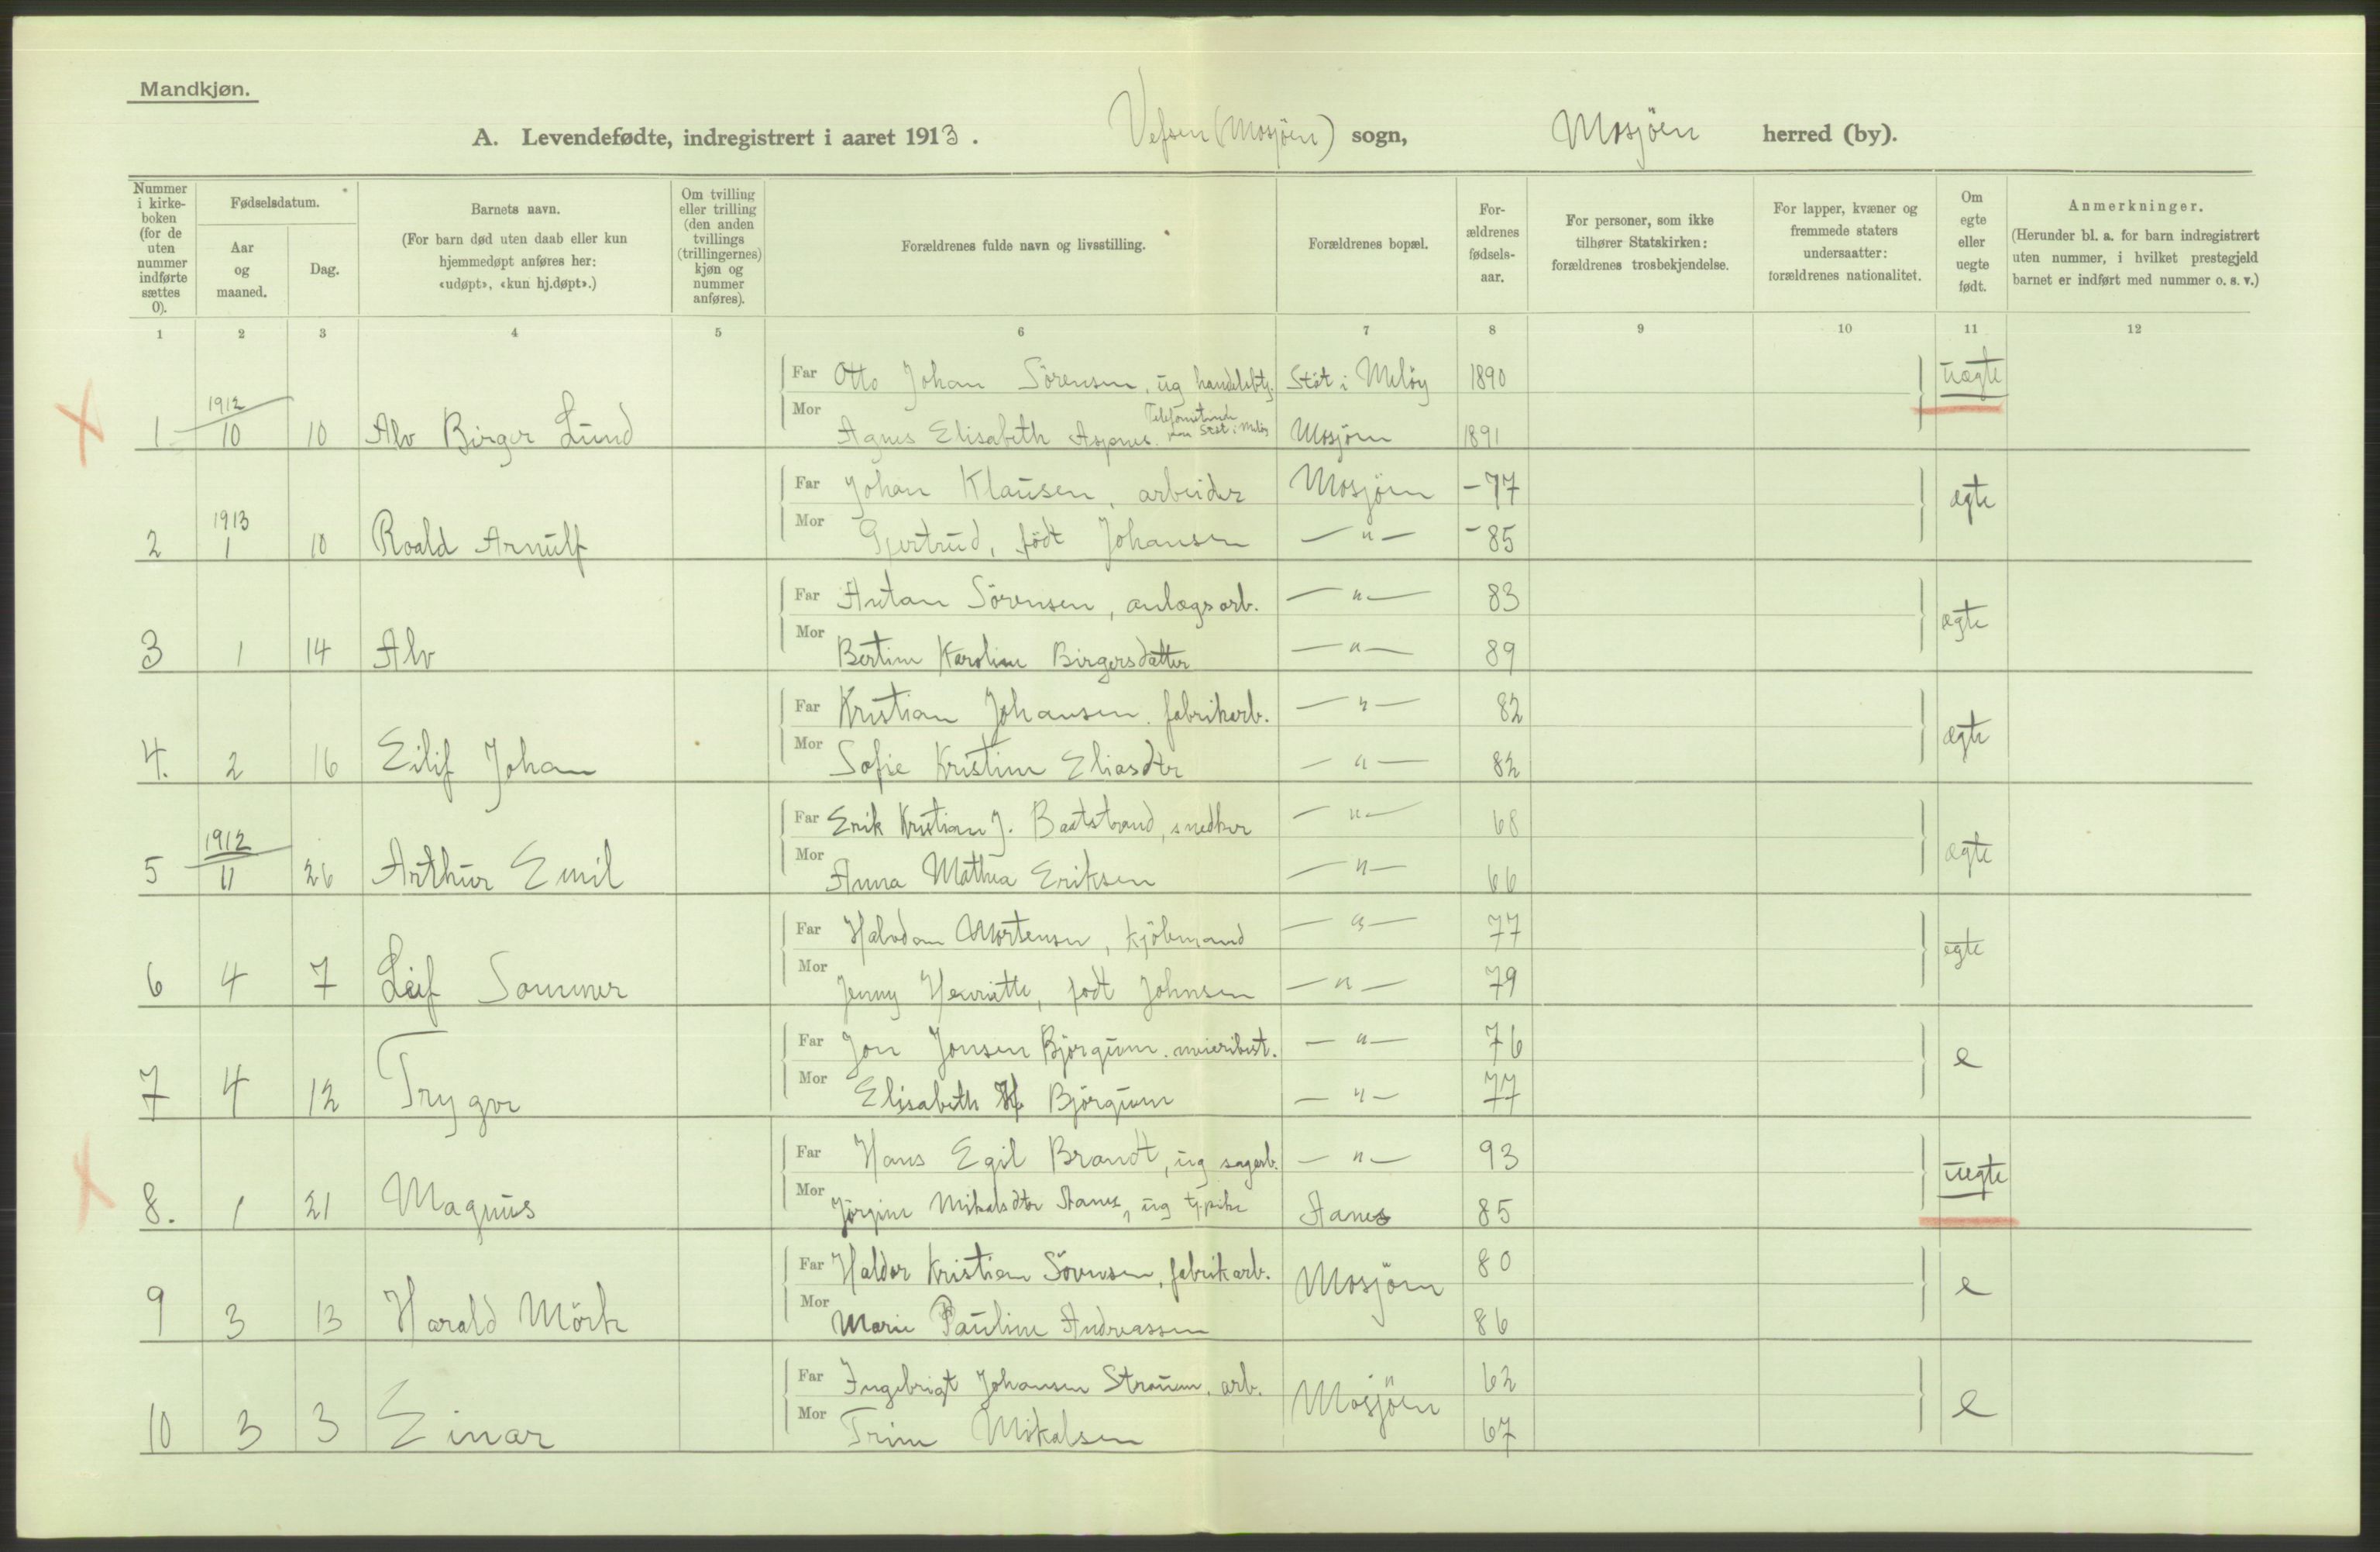 Mandkjøn.
A. Levendefødte, indregistrert i aaret 1913. Vefsen (Mosjöen) sogn, Mosjöen herred (by).
Nummer i kirkeboken (for de uten nummer indførte sættes 0).
Fødselsdatum.
Aar og maaned.
Dag.
Barnets navn.
(For barn død uten daab eller kun hjemmedøpt anføres her: «udøpt», «kun hj.døpt».)
Om tvilling eller trilling (den anden tvillings (trillingernes) kjøn og nummer anføres).
Forældrenes fulde navn og livsstilling.
Forældrenes bopæl.
Forældrenes fødselsaar.
For personer, som ikke tilhører Statskirken: forældrenes trosbekjendelse.
For lapper, kvæner og fremmede staters undersaatter: forældrenes nationalitet.
Om egte eller uegte født.
Anmerkninger.
(Herunder bl. a. for barn indregistrert uten nummer, i hvilket prestegjeld barnet er indført med nummer o. s. v.)
1 2 3 4 5 6 7 8 9 10 11 12
Far Otto Johan Sörensen, ug handelsbtj. Stöt i Melöy 1890 uægte
1 1912 10 10 Alv Birger Lund Mor Agnes Elisabeth Aspnes. Telefonistinde Stöt i Melöy Mosjöen 1891
Far Johan Klausen, arbeider Mosjöen -77 ægte
2 1913 1 10 Roald Arnulf Mor Gjertrud, födt Johansen — " — -85
Far Anton Sörensen, anlægsarb. — " — 83 ægte
3 1 14 Alv Mor Bertine Karoline Birgersdatter — " — 89
Far Kristian Johansen. fabrikarb. — " — 82 ægte
4. 2 16 Eilif Johan Mor Sofie Kristine Eliasdtr — " — 82
Far Erik Kristian J. Baatstrand, snedker — " — 68 ægte
5 1912 11 26 Arthur Emil Mor Anna Mathea Eriksen — " — 66
Far Halvdan Mortensen, kjöbmand — " — 77 egte
6 4 7 Leif Sommer Mor Jenny Henriette, födt Johnsen — " — 79
Far Jon Jonsen Bjørgum. meieribest. — " — 76 e
7 4 12 Trygve Mor Elisabeth Bjørgum — " — 77
Far Hans Egil Brandt, ug sagarb. — " — 93 uegte
8. 1 21 Magnus Mor Jörgine Mikalsdtr Aanes, ug tj.pike Aanes 85
Far Haldor Kristian Sörensen, fabrikarb. Mosjöen 80 e
9 3 13 Harald Mörk Mor Marie Pauline Andreassen 86
Far Ingebrigt Johansen Straum, arb. Mosjöen 62 e
10 3 3 Einar Mor Trine Mikalsen 67